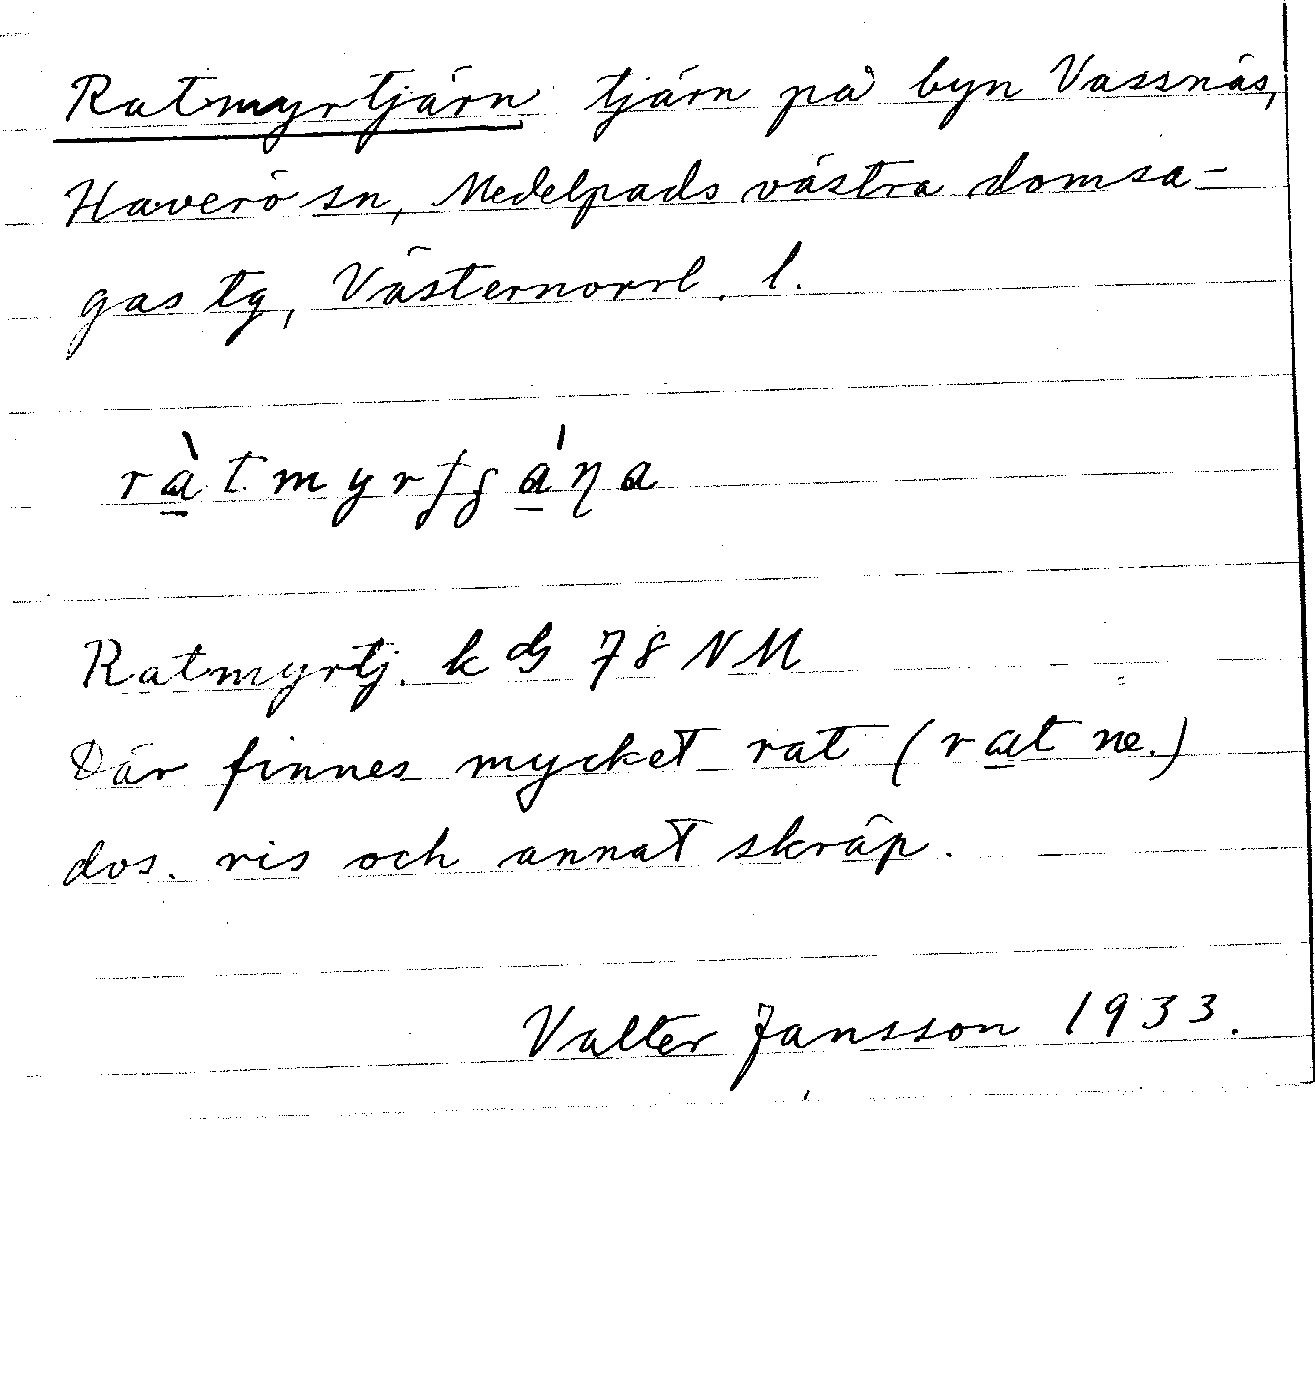 Ratmyrtjärn tjärn på byn Vassnäs,
Haverö sn, Medelpads västra domsa-
gas tg, Västernorrl. l.
Ratmyrtj. k 78 NM
Där finnes mycket rat (rat ne.)
dos. ris och annat skräp.
Valter Jansson 1933.